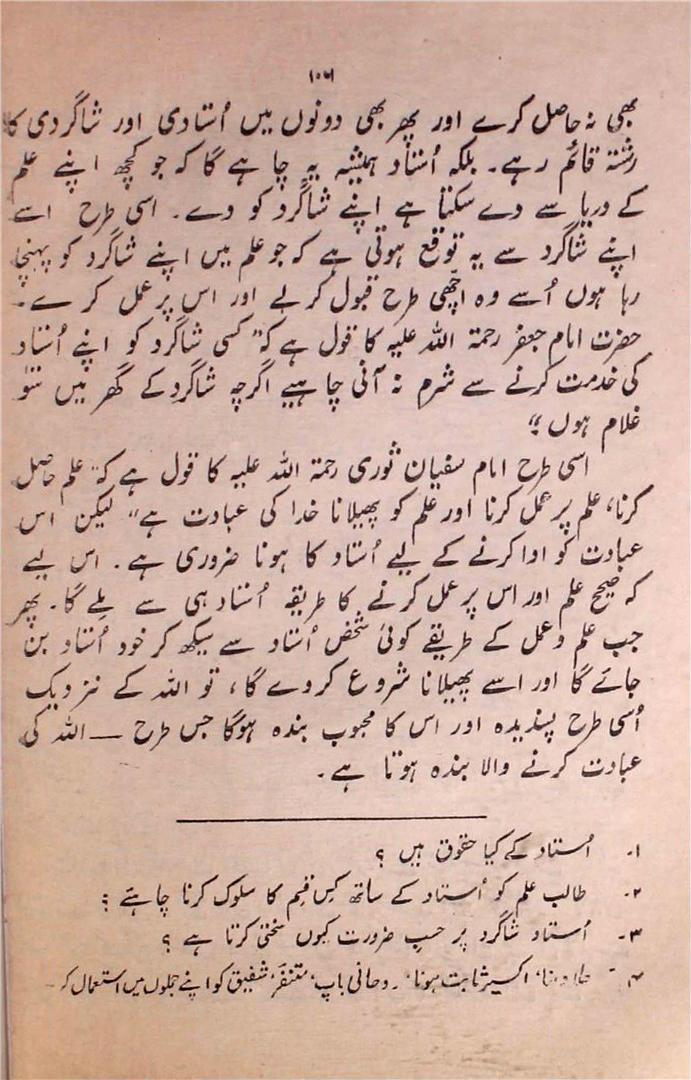 ۱۰۶
بھی نہ حاصل کرے اور پھر بھی دونوں میں اُستادی اور شاگردی کا
رشتہ قائم رہے۔ بلکہ اُستاد ہمیشہ یہ چاہے گا کہ جو کچھ اپنے علم
کے دریا سے دے سکتا ہے اپنے شاگرد کو دے۔ اسی طرح اسے
اپنے شاگرد سے یہ توقع ہوتی ہے کہ جو علم میں اپنے شاگرد کو پہنچا
رہا ہوں اُسے وہ اچھی طرح قبول کرلے اور اس پر عمل کرے۔
حضرت امام جعفر رحمۃ اللہ علیہ کا قول ہے کہ ”کسی شاگرد کو اپنے اُستاد
کی خدمت کرنے سے شرم نہ آنی چاہیے اگرچہ شاگرد کے گھر میں سَو
غلام ہوں“
اسی طرح امام سفیان ثوری رحمۃ اللہ علیہ کا قول ہے کہ ”علم حاصل
کرنا، علم پر عمل کرنا اور علم کو پھیلانا خدا کی عبادت ہے“ لیکن اس
عبادت کو ادا کرنے کے لیے اُستاد کا ہونا ضروری ہے۔ اس لیے
کہ صحیح علم اور اس پر عمل کرنے کا طریقہ اُستاد ہی سے ملے گا۔ پھر
جب علم و عمل کے طریقے کوئی شخص اُستاد سے سیکھ کر خود اُستاد بن
جائے گا اور اسے پھیلانا شروع کردے گا، تو اللہ کے نزدیک
اُسی طرح پسندیدہ اور اس کا محبوب بندہ ہوگا جس طرح — اللہ کی
عبادت کرنے والا بندہ ہوتا ہے۔
۱۔ اُستاد کے کیا حقوق ہیں ؟
۲۔ طالب علم کو اُستاد کے ساتھ کس قسم کا سلوک کرنا چاہئے ؟
۳۔ اُستاد شاگرد پر حسبِ ضرورت کیوں سختی کرتا ہے ؟
۴۔ اکسیر ثابت ہونا، روحانی باپ، متنفر، شفیق کو اپنے جملوں میں استعمال کر